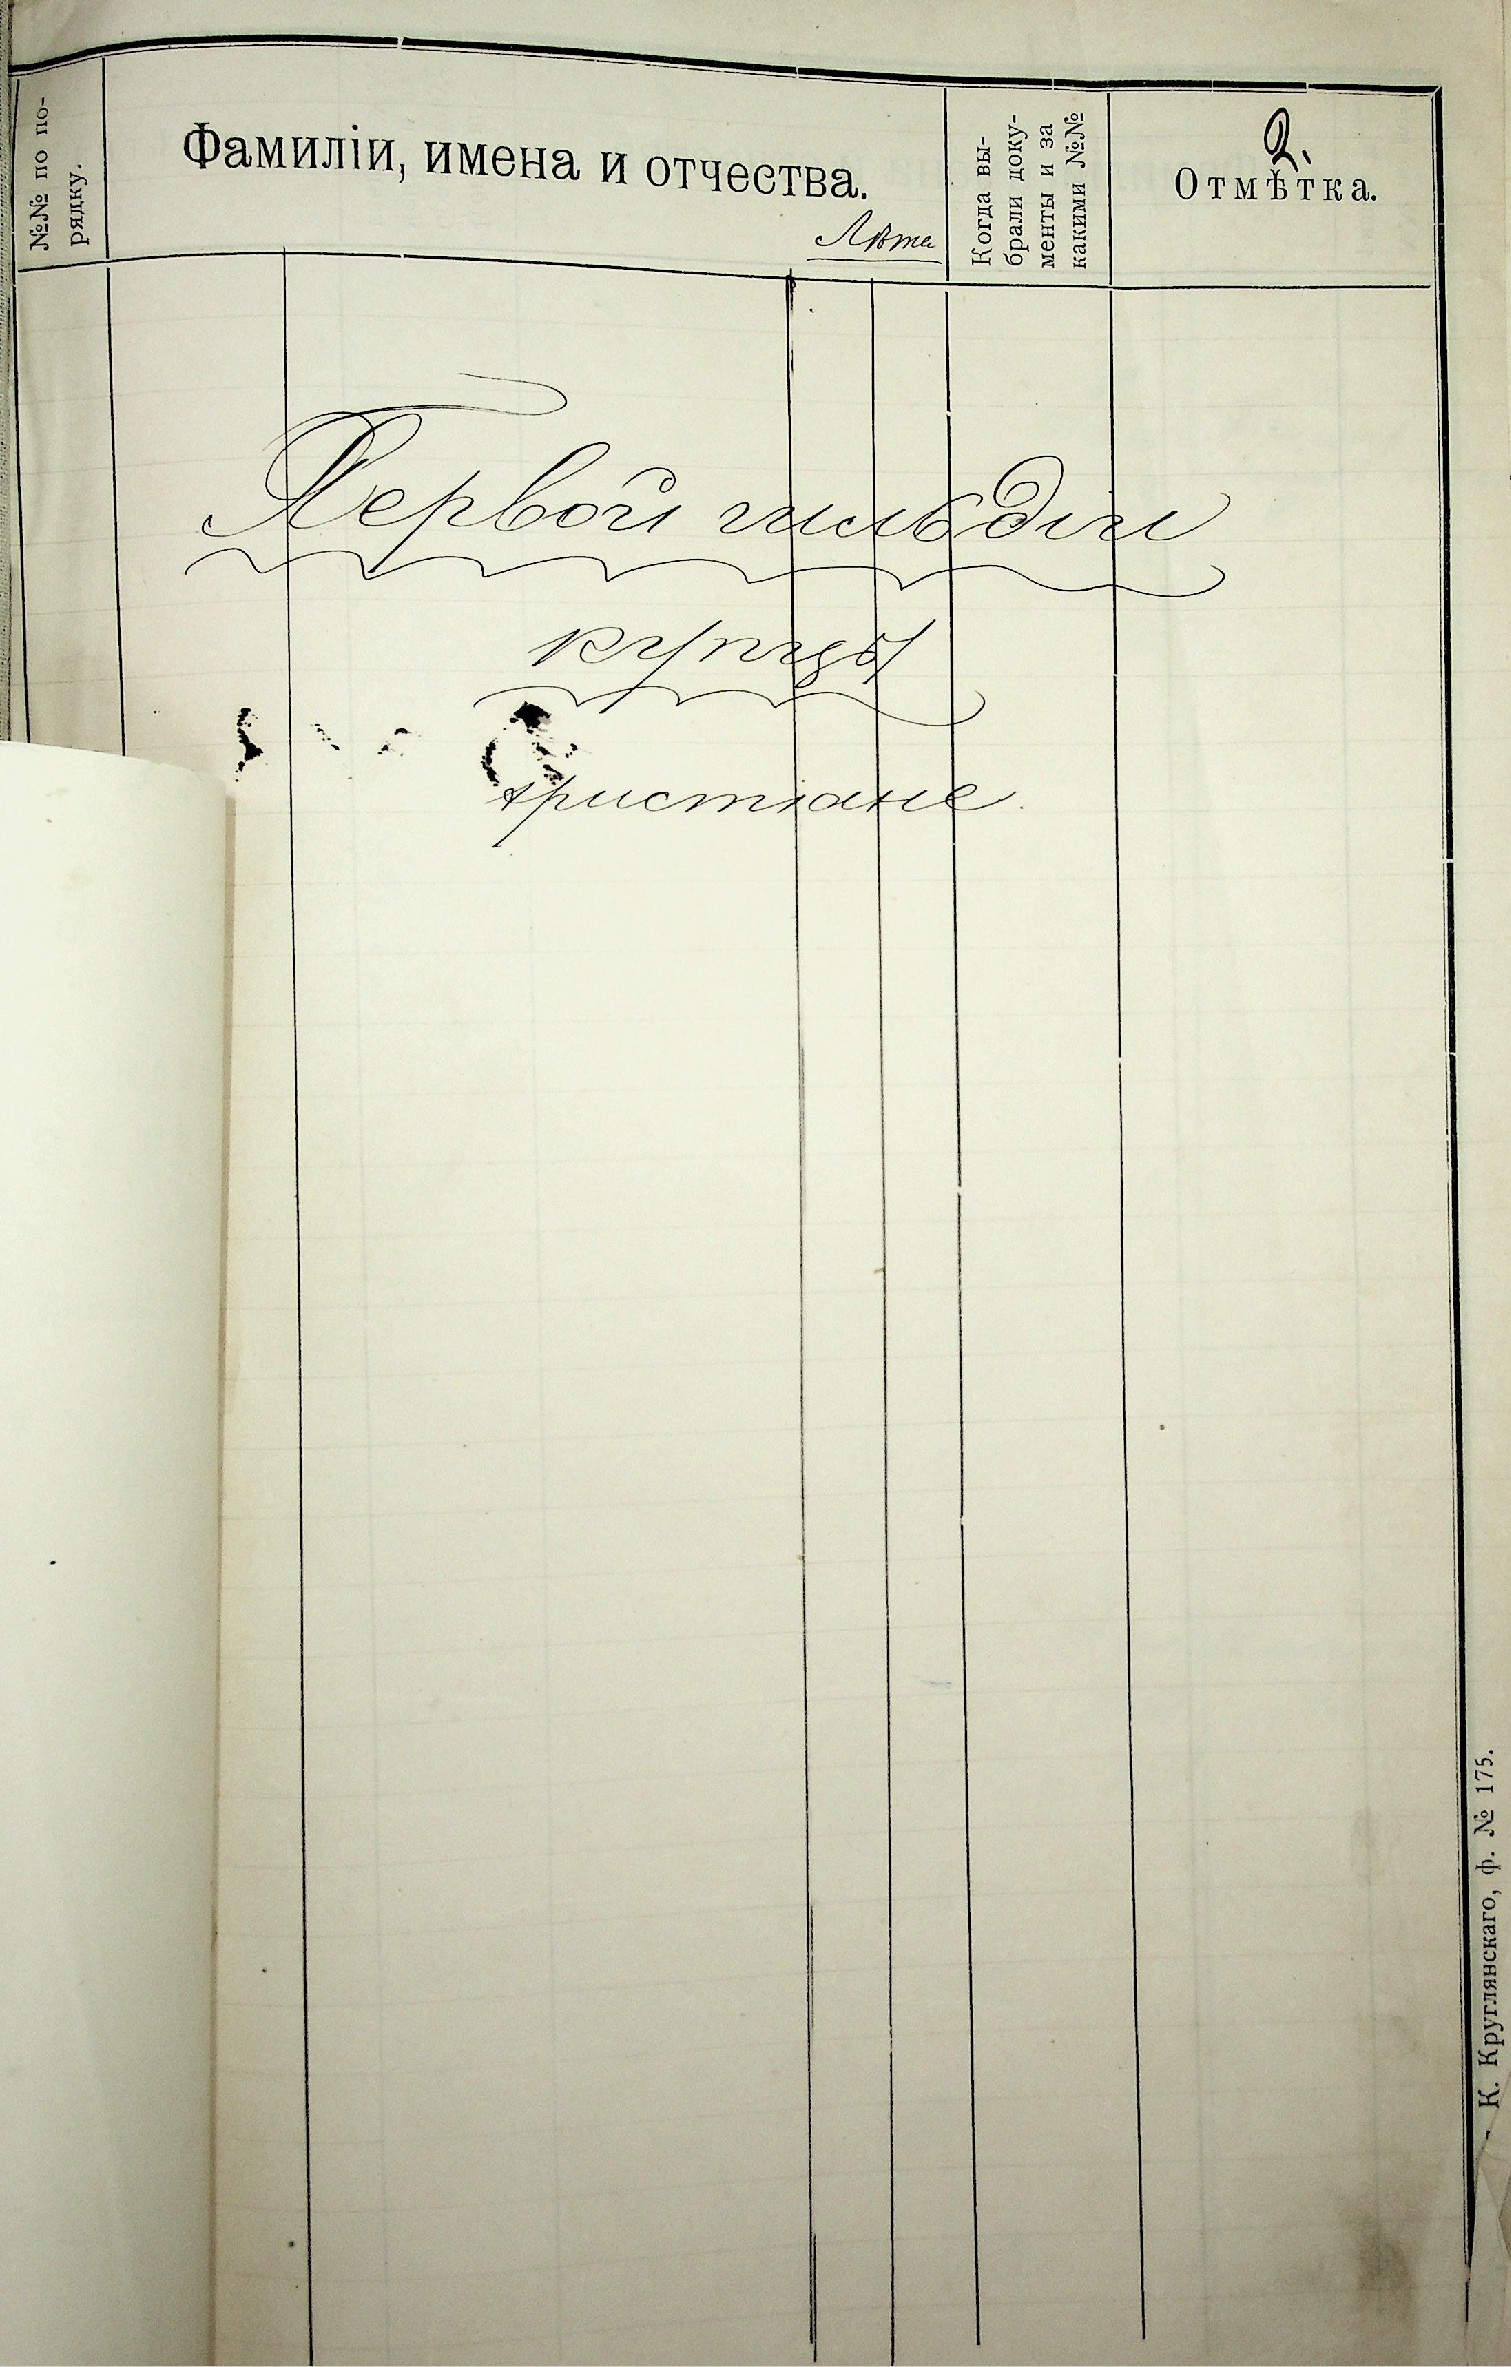 №№ по по-
рядку.
Фамиліи, имена и отчества.
Лѣта
Когда вы-
брали доку-
менты и за
какими №№
2.
Отмѣтка.
Первой гильдіи
купцы
христіане
К. Круглянскаго, ф. № 175.